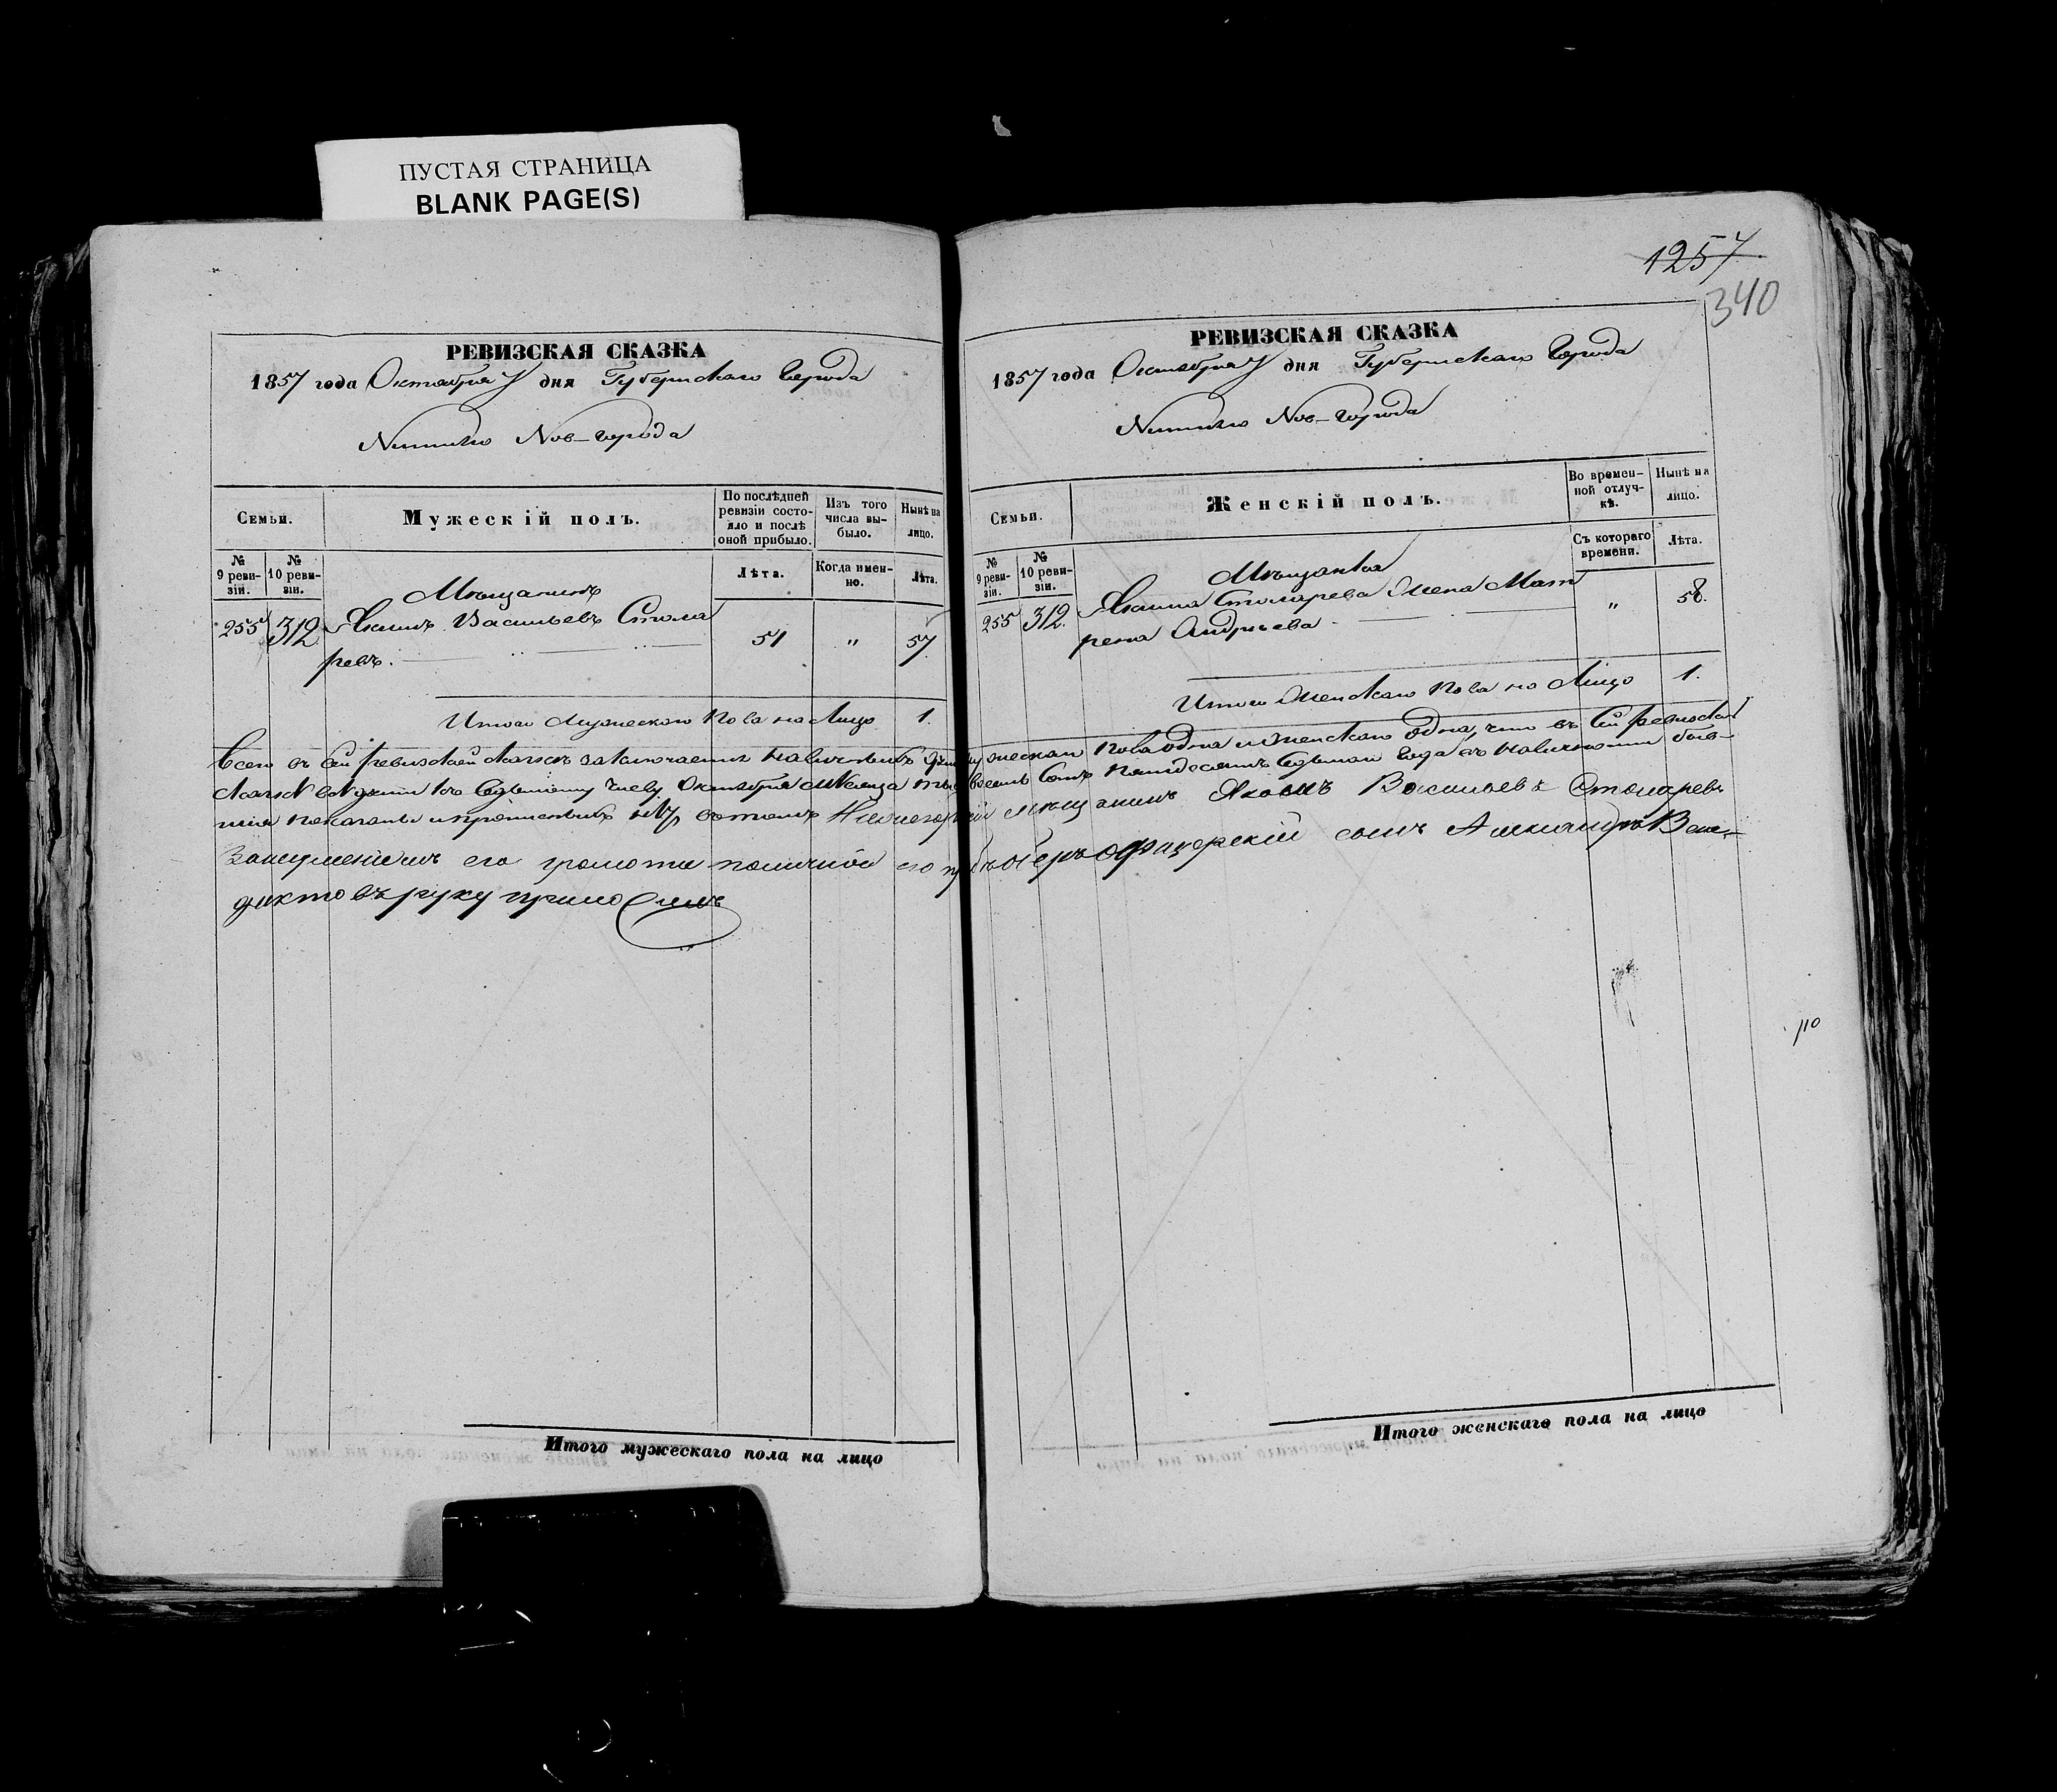 ПУСТАЯ СТРАНИЦА
BLANK PAGE(S)
РЕВИЗСКАЯ СКАЗКА
1857 года Октября 7 дня Губернскаго Города
Нижняго Нов-города
Семьи.
Мужескій полъ.
По послѣдней ревизіи состояло и послѣ оной прибыло.
Изъ того числа выбыло.
Нынѣ на лицо.
№ 9 ревизіи.
№ 10 ревизіи.
Лѣта.
Когда именно.
Лѣта.
Мѣщанинъ
255 312 Васильевъ Стола
ревъ. 51 " 57
Итого Мужескаго Пола на Лицо 1.
1257
340
РЕВИЗСКАЯ СКАЗКА
1857 года Октября 7 дня Губернскаго Города
Нижняго Нов-города
Семьи.
Женскій полъ.
Во временной отлучкѣ.
Нынѣ на лицо.
№ 9 ревизіи.
№ 10 ревизіи.
Съ котораго времени.
Лѣта.
Мѣщанка
255 312. Столярева Жена Мат
рена Андреева " 58.
Итого Женскаго Пола на Лицо 1.
Всего въ сей ревизской сказкѣ заключается наличныхъ мужескаго пола одна и женскаго одна, что въ сей ревизской
сказкѣ къ седьмому числу Октября Мѣсяца восемь сотъ пятьдесятъ седьмаго года въ наличности
показаны и въ томъ мѣщанинъ Васильевъ Столяревъ
его грамоты по личной его оберъ офицерскій сынъ Александръ Вене-
диктовъ руку приложилъ
по
Итого мужескаго пола на лицо
Итого женскаго пола на лицо